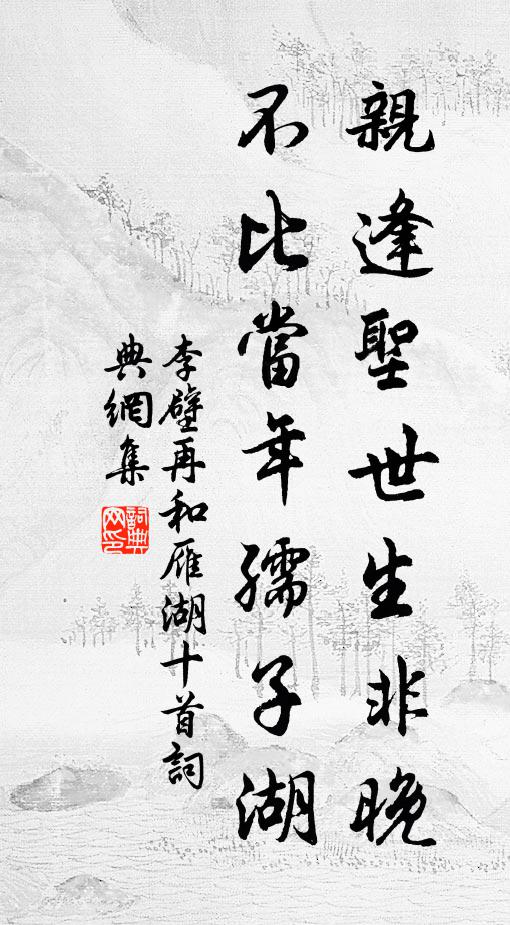 親逢聖世生非晚
不比當年孺子湖
李壁再和雁湖十首詞
典網集
詞典網印